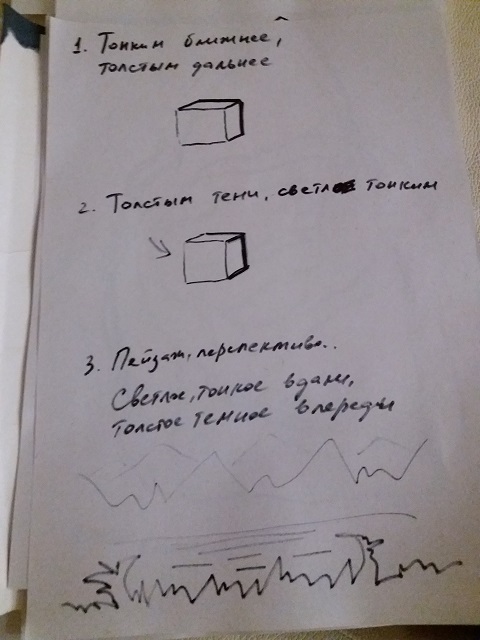 1. Тонким ближнее,
толстым дальнее
2. Толстым тени, светлое тонким
3. Пейзаж, перспектива..
Светлое, тонкое вдали,
толстое темное впереди